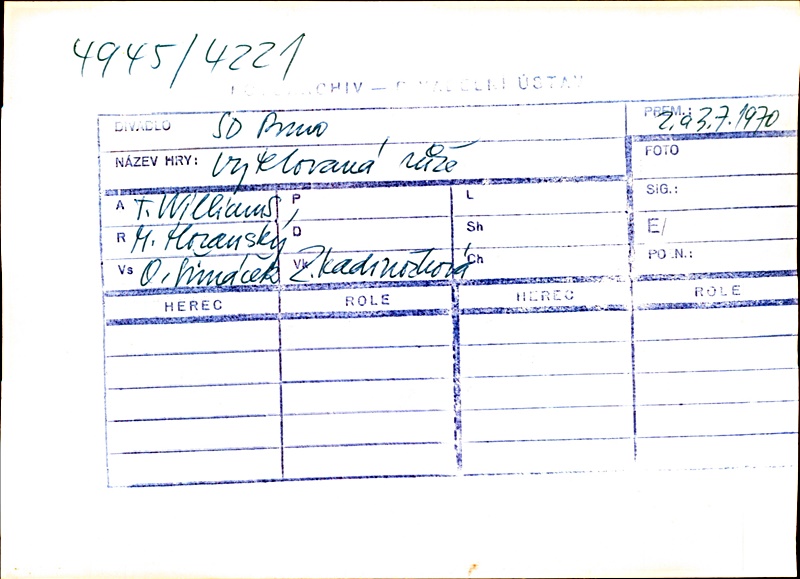 4945/4221
FOTOARCHIV — DIVADELNÍ ÚSTAV
DIVADLO SD Brno PREM.: 2. a 3.7.1970
NÁZEV HRY: Vytetovaná růže FOTO
A T. Williams, P L SIG.:
R M. Moravský D Sh E/
Vs O. Šimáček Vk Z. Kadrnožková Ch PO.N.:
HEREC ROLE HEREC ROLE